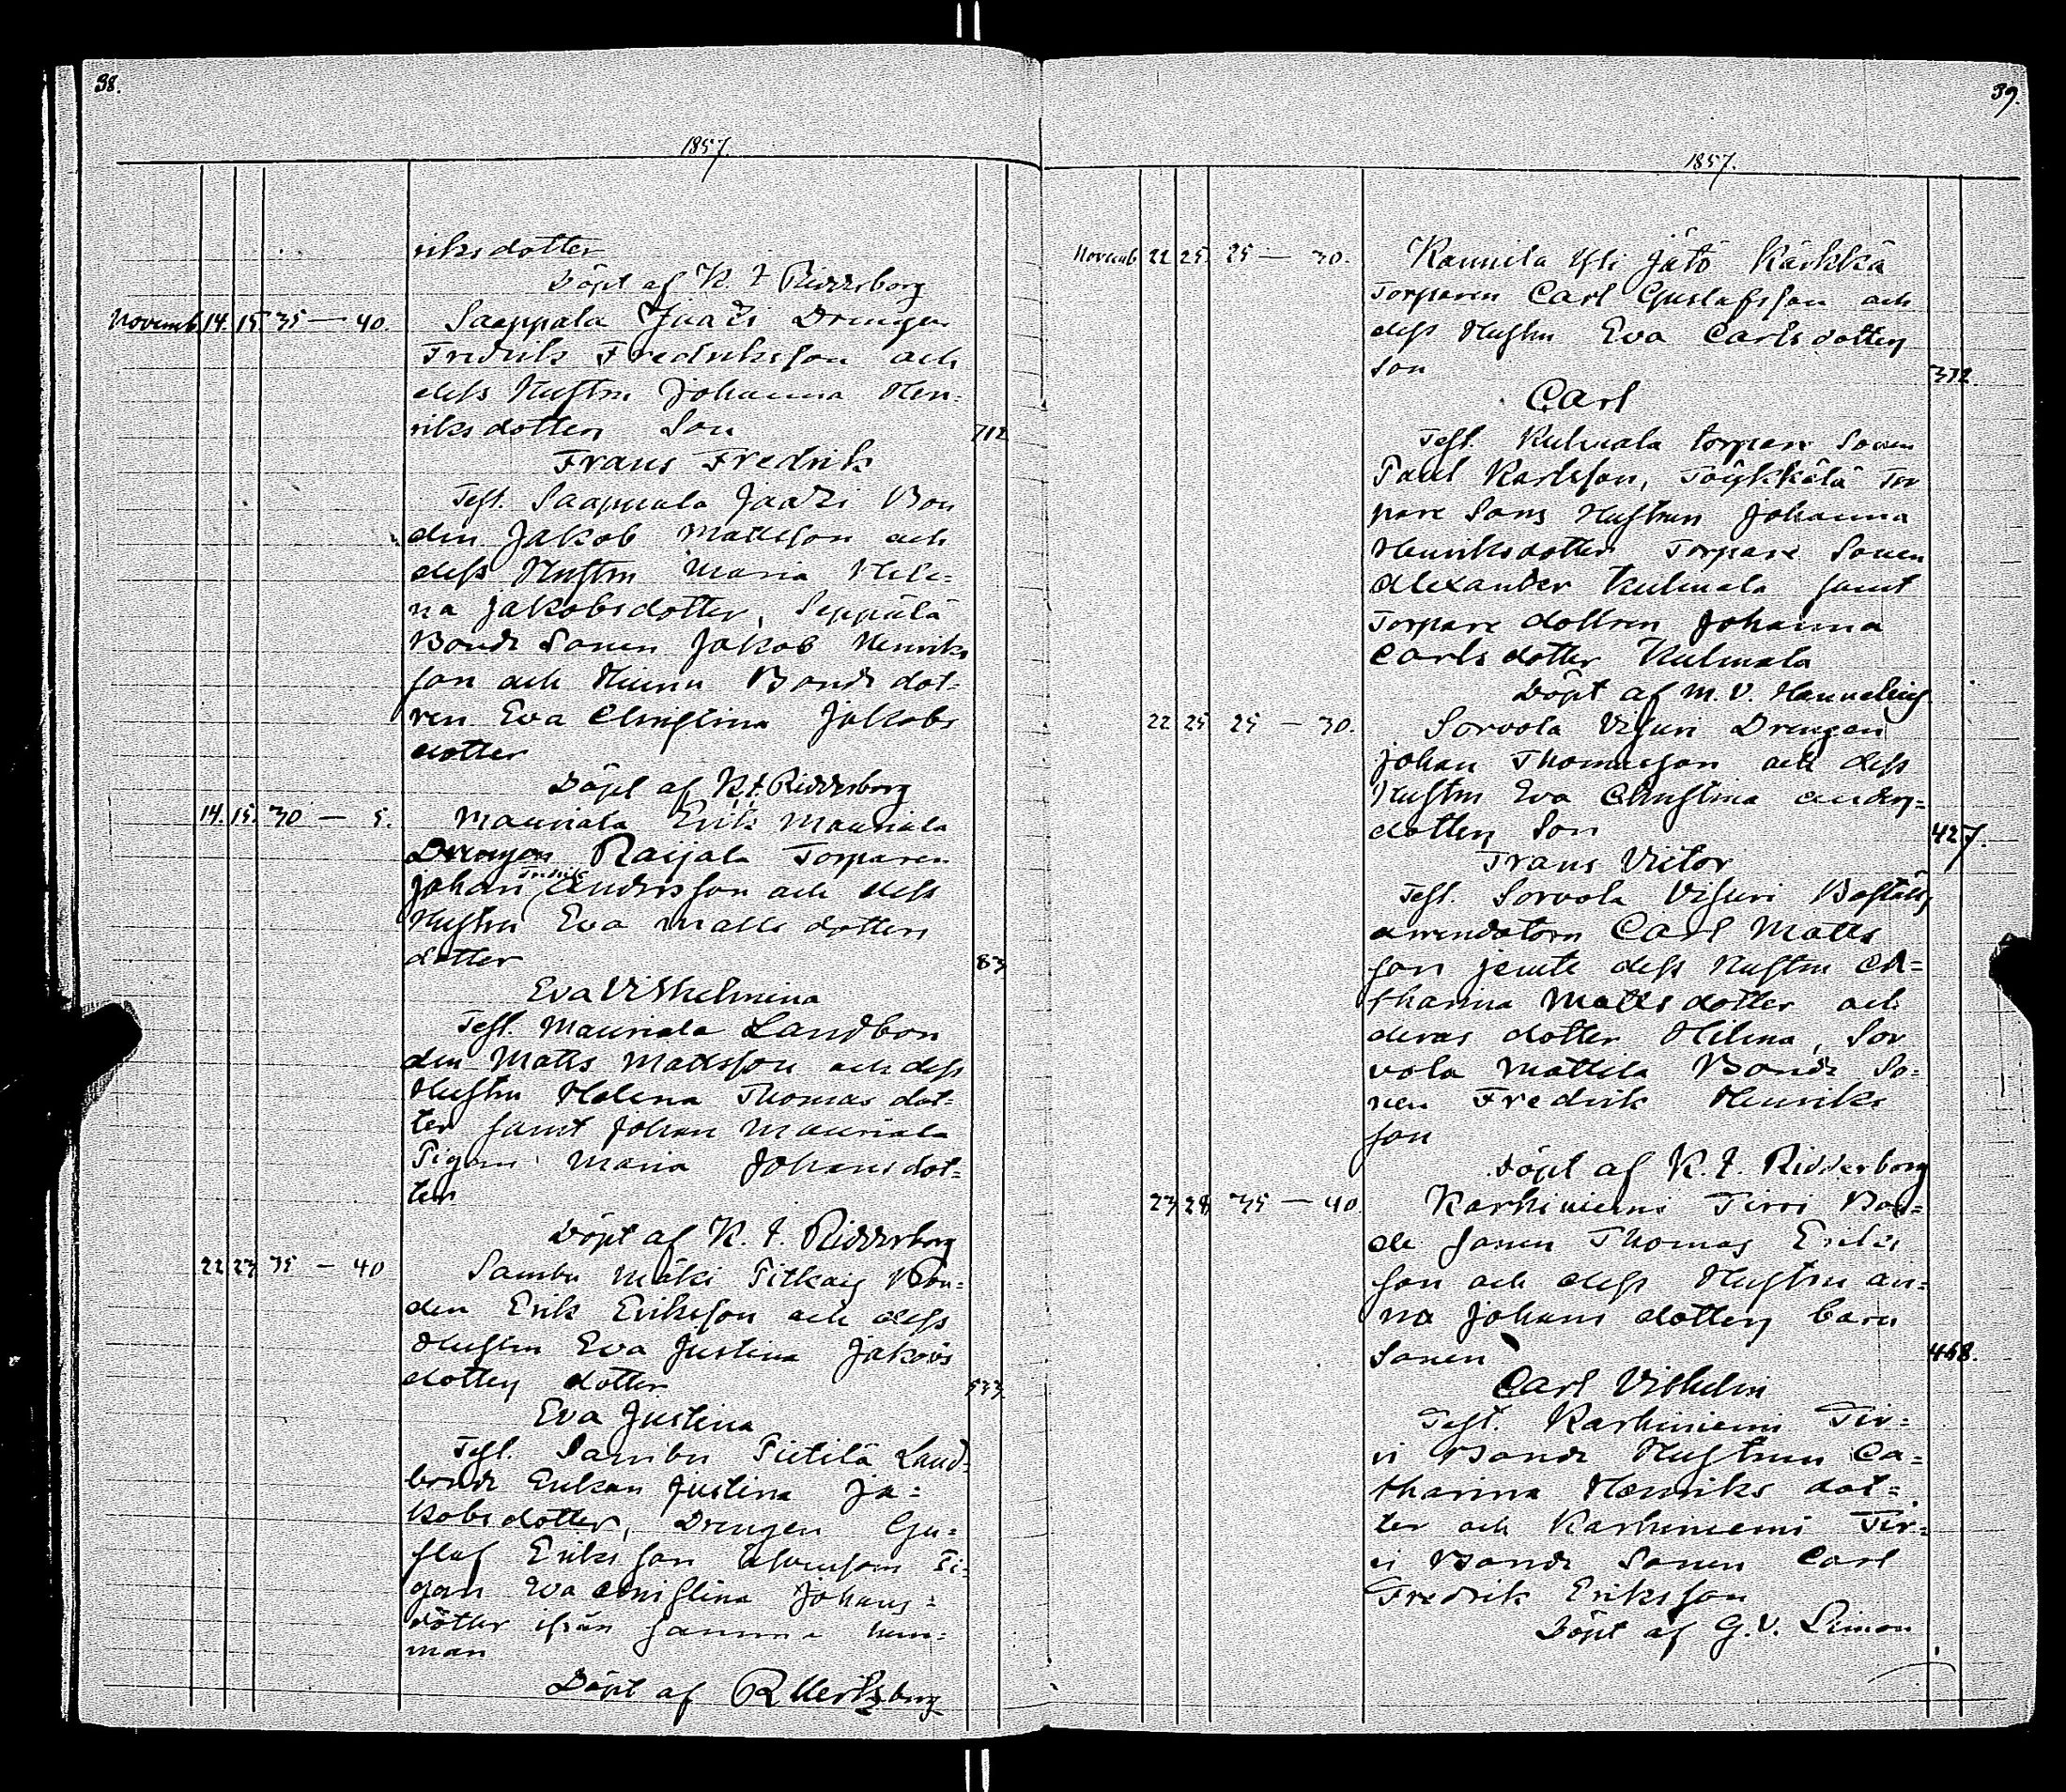 38.
1857.
riksdotter
Döpt af K. F. Riddersborg
Novemb. 14. 15. 35 — 40. Saappala Jaari Drengen
Fredrik Fredriksson och
dess Hustru Johanna Hen-
riksdotters Son 712
Frans Fredrik
Test. Saappala Jaari Bon
den Jakob Mattsson och
dess Hustru Maria Hele-
na Jakobsdotter, Seppälä
Bonde Sonen Jakob Henriks
son och Bonde dot-
ren Eva Christina Jakobs
dotter
Döpt af K. F. Riddersborg
14. 15. 30 — 5. Mauriala Erik Mauriala
Drengen Raijala Torparen
Johan Fredrik Andersson och dess
Hustru Eva Matts dotters
dotter 83
Eva Vilhelmina
Test. Mauriala Landbon
den Matts Mattsson och dess
Hustru Helena Thomas dot-
ter samt Johan Mauriala
Pigan Maria Johansdot-
ter
Döpt af K. F. Riddersborg
22 23 35 — 40 Sambu Mäki Pitkäis Bon-
den Erik Eriksson och dess
Hustru Eva Justina Jakobs
dotters dotter 533
Eva Justina
Test. Sambu Pietilä Land-
bonde Enkan Justina Ja-
kobsdotter, Drengen Gu-
staf Eriksson Pi-
gan Eva Christina Johans-
dotter ifrån samma hem-
man
Döpt af R Mertzborg
39.
1857.
Novemb 22 25. 25 — 30. Kaunila Yli Jätö Kärkkä
Torparen Carl Gustafsson och
dess Hustru Eva Carlsdotters
Son 372.
Carl
Test. Kulmala torpare Sonen
Paul Karlsson, Töykkälä Tor
pare Sons Hustrun Johanna
Henriksdotter Torpare Sonen
Alexander Kulmala samt
Torpare dottren Johanna
Carls dotter Kulmala
Döpt af M. V. Hannelius
22 25 25 — 30. Sorvola Visuri Drengen
Johan Thomasson och dess
Hustru Eva Christina Anders-
dotters Son 427.
Frans Victor
Test. Sorvola Visuri Boställs
arrendatorn Carl Matts
son jemte dess Hustru Ca-
tharina Matts dotter och
deras dotter Helena, Sor
vola Mattila Bonde So-
nen Fredrik Henriks
son
Döpt af K. F. Riddersborg
23 28 35 — 40. Karhiniemi Tirri Bon-
de Sonen Thomas Eriks
son och dess Hustru An-
na Johans dotters barn
Sonen 468.
Carl Vilhelm
Test. Karhiniemi Tir-
ri Bonde Hustrun Ca-
tharina Henriks dot-
ter och Karhiniemi Tir-
ri Bonde Sonen Carl
Fredrik Eriksson
Döpt af G. V. Limon